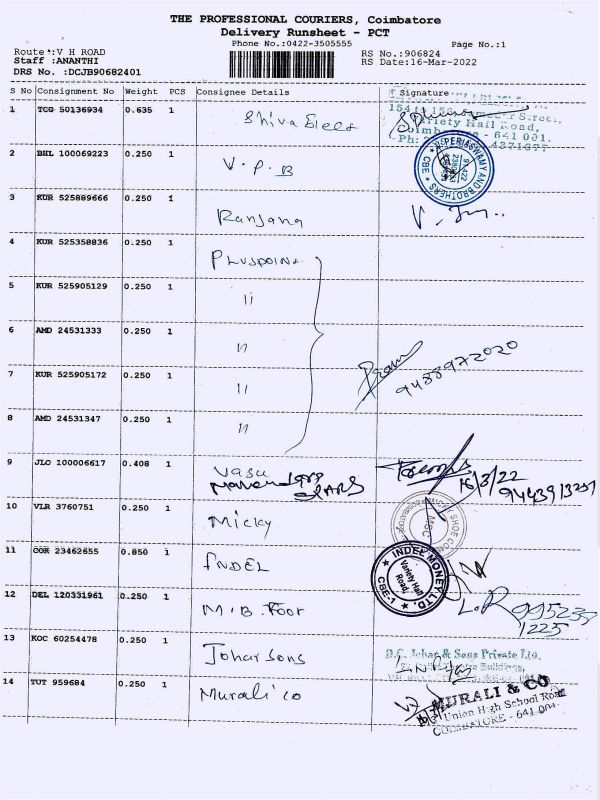 THE PROFESSIONAL COURIERS, Coimbatore
Delivery Runsheet - PCT
Phone No.:0422-3505555 Page No.:1
Route :V H ROAD RS No.:906824
Staff :ANANTHI RS Date:16-Mar-2022
DRS No. :DCJB90682401
S No Consignment No Weight PCS Consignee Details Signature
1 TCG 50136934 0.635 1
Variety Hall Road,
2 BHL 100069223 0.250 1 V.P.B
PERIASWAMY AND BROTHERS
CBE
3 KUR 525889666 0.250 1 Ranjana
4 KUR 525358836 0.250 1 Pluspoint
5 KUR 525905129 0.250 1 ıı
6 AMD 24531333 0.250 1 ıı
9488972020
7 KUR 525905172 0.250 1 ıı
8 AMD 24531347 0.250 1 ıı
9 JLO 100006617 0.408 1 Vasu
16/3/22
10 VLR 3760751 0.250 1 Micky
MSC
11 COK 23462655 0.850 1 INDEL
INDEL MONEY LTD.
Variety Hall Road,
CBE-1
12 DEL 120331961 0.250 1 M.B. Foot
L.R
1225
13 KOC 60254478 0.250 1 Johar Sons
D.C. Johar & Sons Private Ltd.
14 TUT 959684 0.250 1 Murali co
MURALI & CO
Union High School Road
COIMBATORE - 641 001.